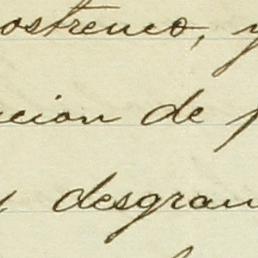 ostrenco, y
cion de p
y desgran